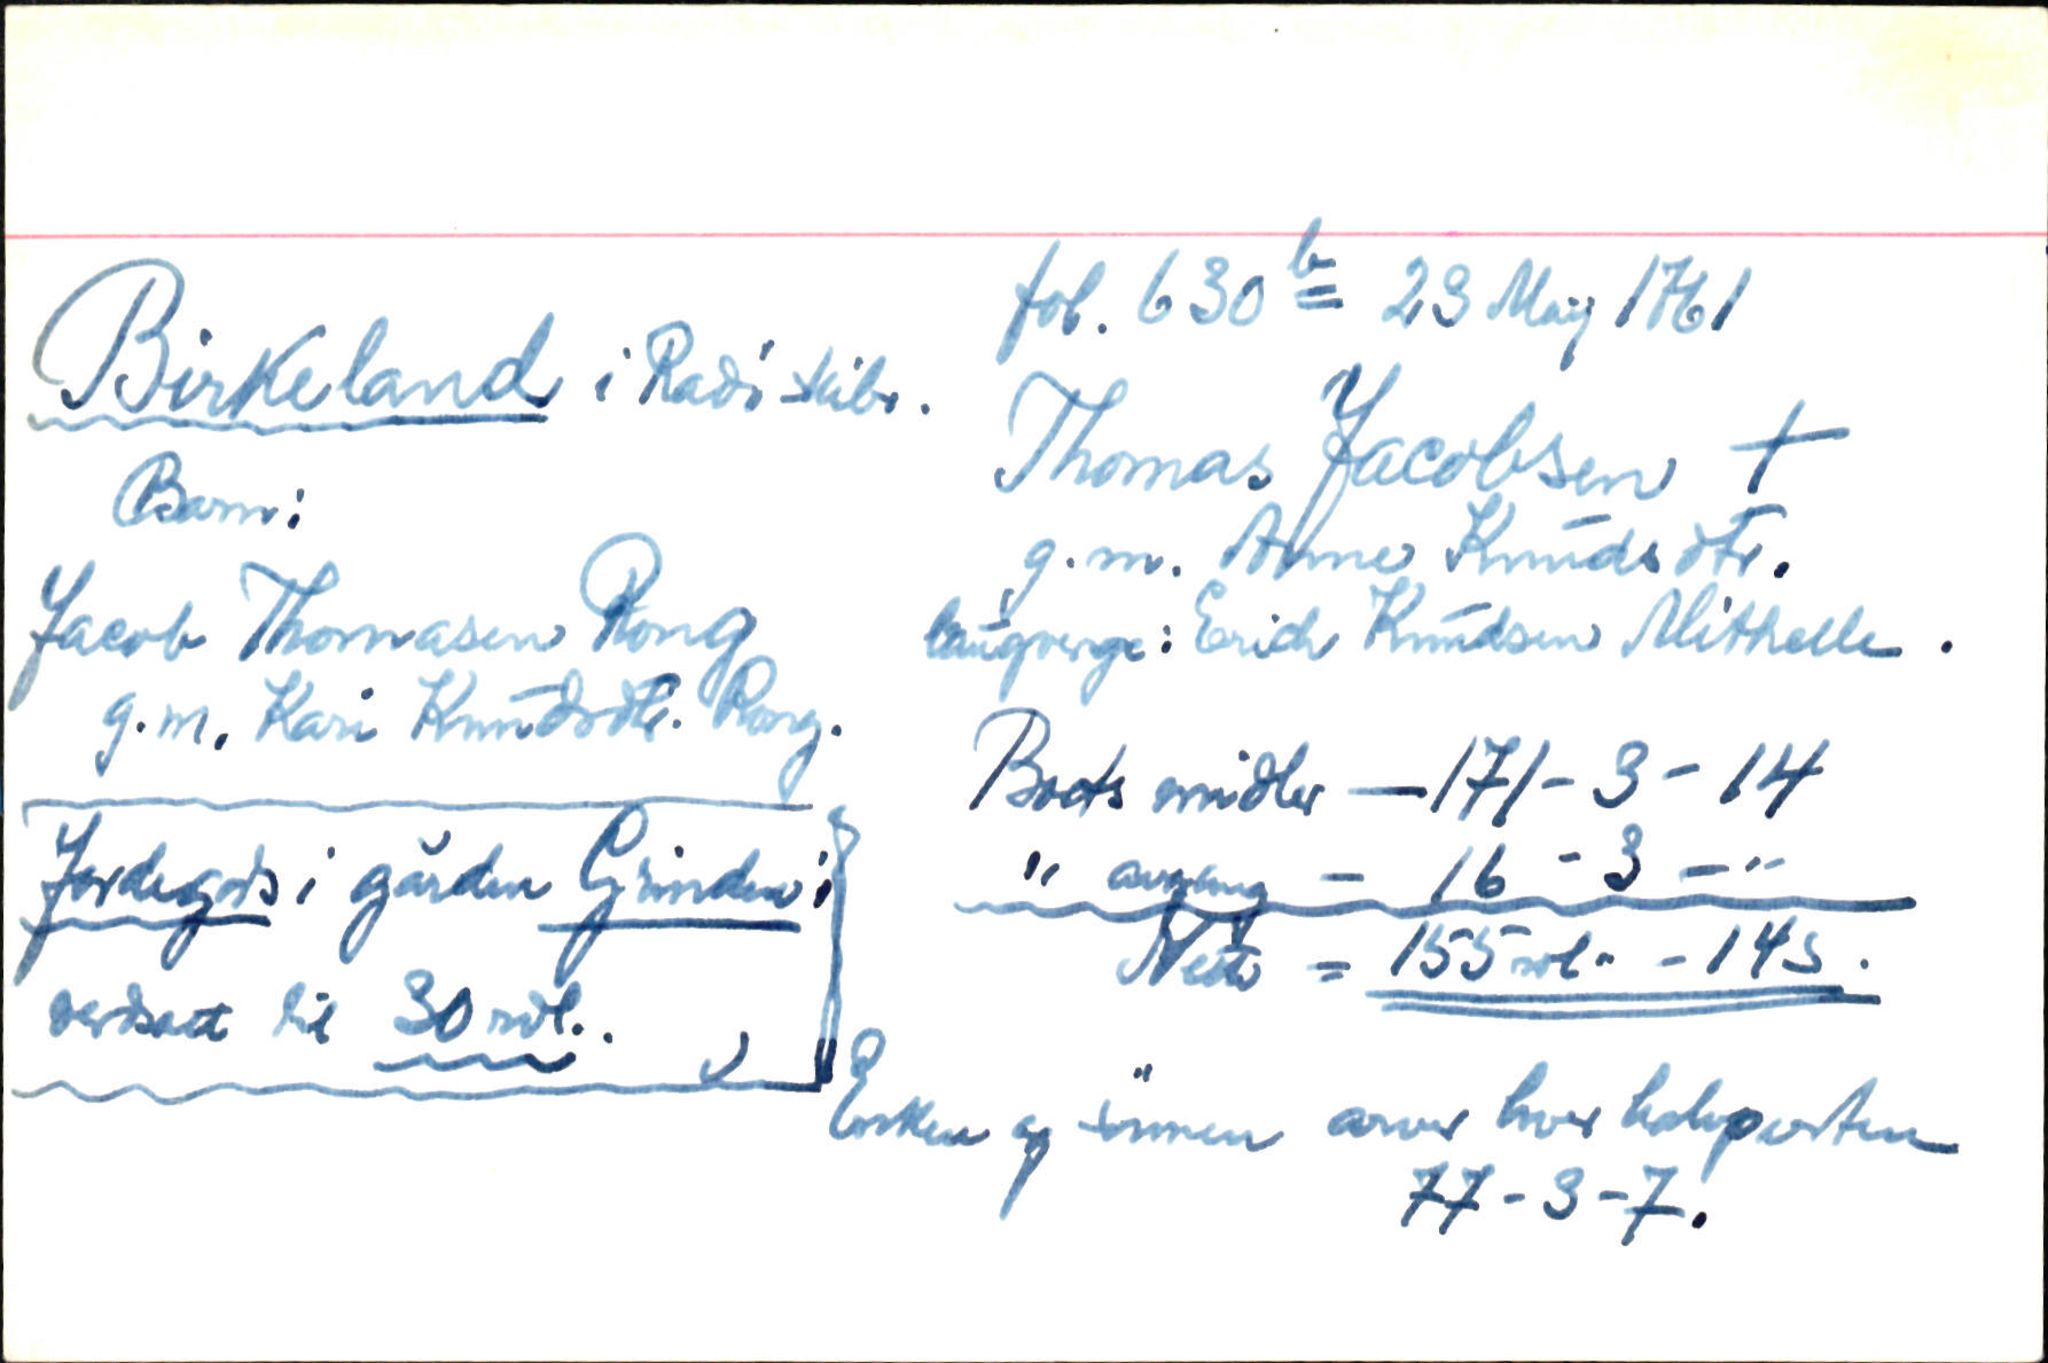 Birkeland i Radø skibr.
Barn:
Jacob Thomasen Rong
g.m. Kari Knudsdtr. Rong.
Jordegods i gården Grinden i
verdsatt til 30 rdl.
fol. 630 b 23 May 1761
Thomas Jacobsen †
g.m. Anne Knudsdtr.
laugverge: Erich Knudsen
Boets midler — 171 - 3 - 14
" avgang - 16 - 3 - "
Netto = 155 rdl. " - 14 s.
Enken og sönnen arver hver halvparten
77 - 3 - 7.